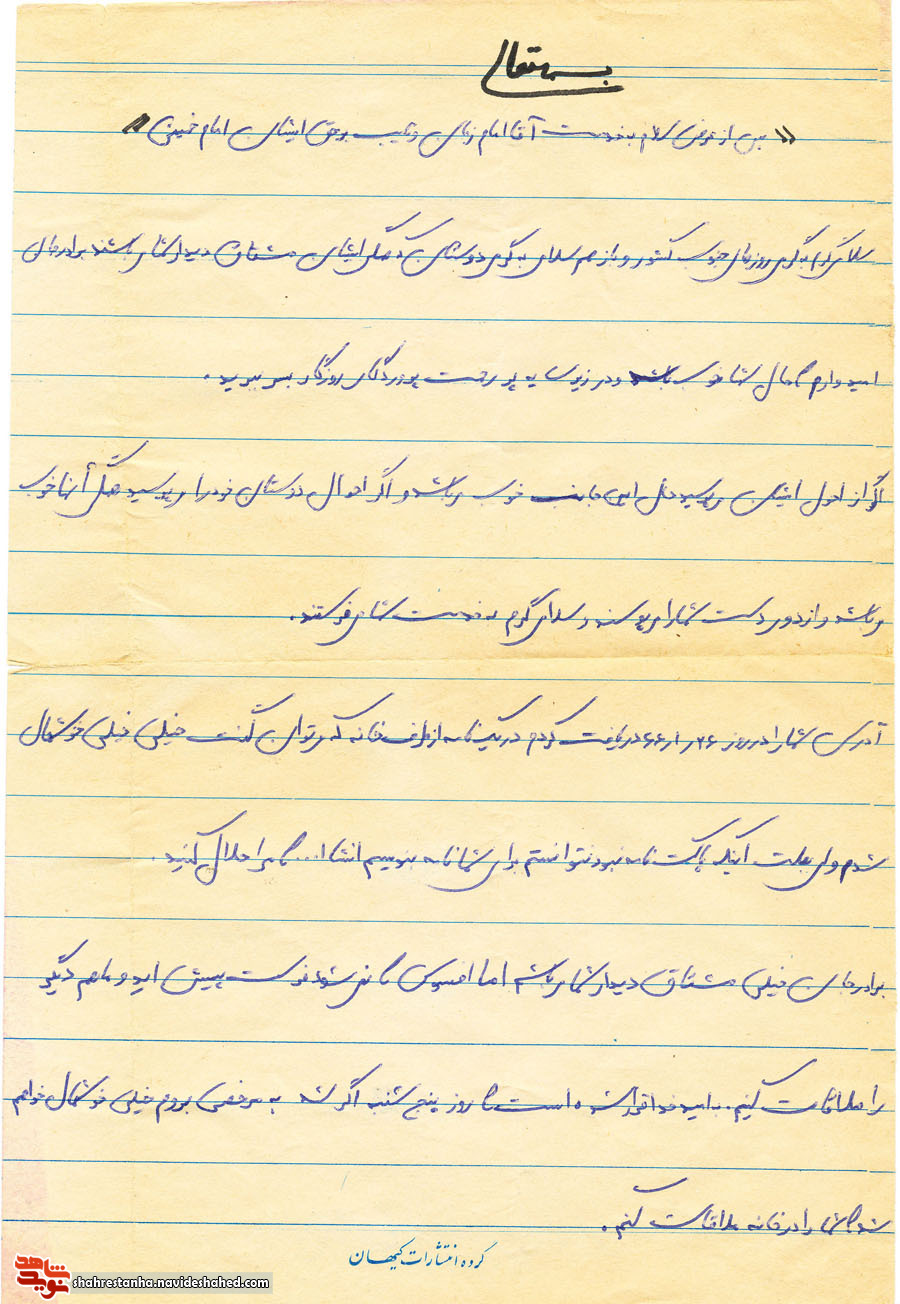 بسمه تعالی
«پس از عرض سلام به خدمت آقا امام زمان و نایب برحق ایشان امام خمینی»
سلامی گرم به گرمی روزهای جنوب کشور و باز هم سلامی به گرمی دوستان که همگی ایشان مشتاق دیدار شما می باشند برادر جان
امیدوارم که حال شما خوب باشد و در زیر سایه پر رحمت پروردگار روزگار بسر ببرید.
اگر از احوال ایشان می پرسید حال این جانب خوب می باشد و اگر احوال دوستان خود را می پرسید همگی آنها خوب
می باشند و از دور دست شما را می بوسند و سلامی گرم به خدمت شما می فرستند.
آدرس شما را در روز ۶۶ر۱ر۲۶ دریافت کردم در یک نامه از طرف خانه که می توان گفت خیلی خیلی خوشحال
شدم ولی بعلت اینکه پاکت نامه نبود نتوانستم برای شما نامه بنویسم انشا ا... که مرا حلال کنید.
برادر جان خیلی مشتاق دیدار شما می باشم اما افسوس که نمی شود فرصت پیش اید و ما هم دیگر
را ملاقات کنیم. به امید خدا قرار شده است که روز پنج شنبه اگر شد به مرخصی بروم خیلی خوشحال خواهم
شد که شما را در خانه ملاقات کنم.
گروه انتشارات کیهان
نوید شاهد
shahrestanha.navideshahed.com